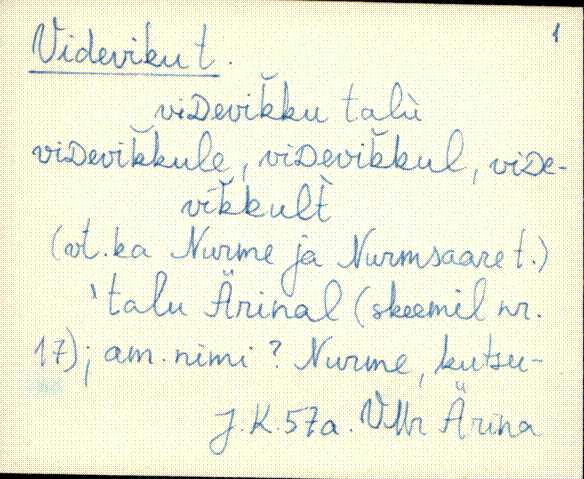 1
Videviku t.
viDevik̆ku talù
viDevik̆kule, viDevik̆kul, viDe-
vik̆kult̀
(vt. ka Nurme ja Nurmsaare t.)
'talu Ärinal (skeemil nr.
17); am. nimi? Nurme, kutsu-
J.K. 57a. VMr Ärina